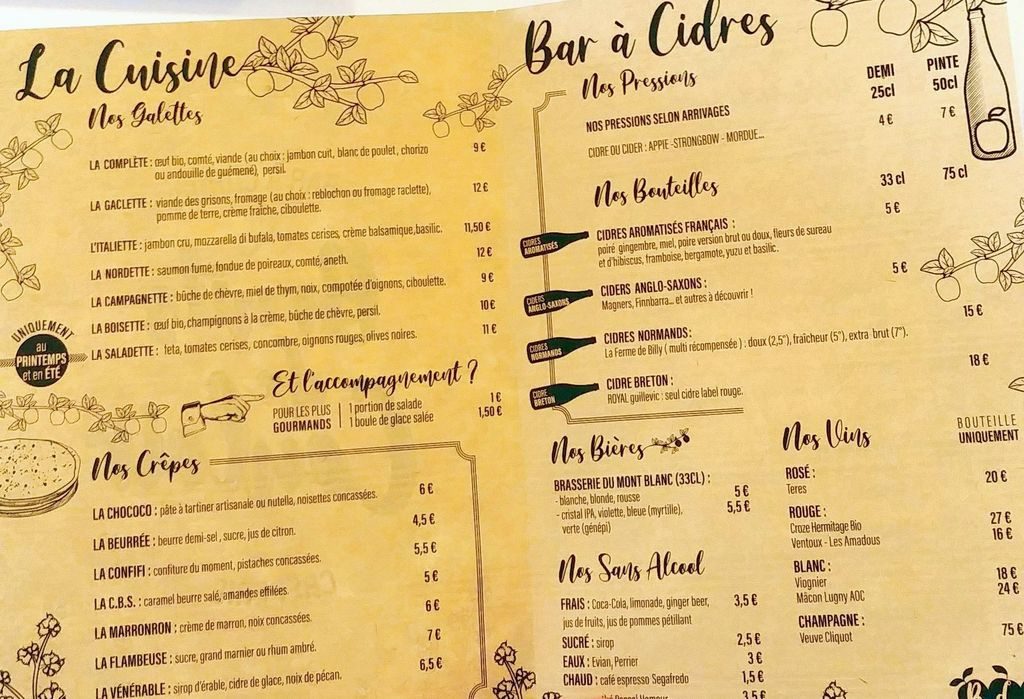 La Cuisine
Nos Galettes
LA COMPLÈTE : œuf bio, comté, viande (au choix : jambon cuit, blanc de poulet, chorizo 9 €
ou andouille de guémené), persil.
LA GACLETTE : viande des grisons, fromage (au choix : reblochon ou fromage raclette), 12 €
pomme de terre, crème fraîche, ciboulette.
L'ITALIETTE : jambon cru, mozzarella di bufala, tomates cerises, crème balsamique,basilic. 11,50 €
LA NORDETTE : saumon fumé, fondue de poireaux, comté, aneth. 12 €
LA CAMPAGNETTE : bûche de chèvre, miel de thym, noix, compotée d'oignons, ciboulette. 9 €
LA BOISETTE : œuf bio, champignons à la crème, bûche de chèvre, persil. 10 €
UNIQUEMENT
au
PRINTEMPS
et en ÉTÉ
LA SALADETTE : feta, tomates cerises, concombre, oignons rouges, olives noires. 11 €
Et l'accompagnement ?
POUR LES PLUS
GOURMANDS
1 portion de salade 1 €
1 boule de glace salée 1,50 €
Nos Crêpes
LA CHOCOCO : pâte à tartiner artisanale ou nutella, noisettes concassées. 6 €
LA BEURRÉE : beurre demi-sel , sucre, jus de citron. 4,5 €
LA CONFIFI : confiture du moment, pistaches concassées. 5,5 €
LA C.B.S. : caramel beurre salé, amandes effilées. 5 €
LA MARRONRON : crème de marron, noix concassées. 6 €
LA FLAMBEUSE : sucre, grand marnier ou rhum ambré. 7 €
LA VÉNÉRABLE : sirop d'érable, cidre de glace, noix de pécan. 6,5 €
Bar à Cidres
Nos Pressions
DEMI PINTE
25cl 50cl
NOS PRESSIONS SELON ARRIVAGES 4 € 7 €
CIDRE OU CIDER : APPIE -STRONGBOW - MORDUE...
Nos Bouteilles
33 cl 75 cl
CIDRES
AROMATISÉS
CIDRES AROMATISÉS FRANÇAIS : 5 €
poiré gingembre, miel, poire version brut ou doux, fleurs de sureau
et d'hibiscus, framboise, bergamote, yuzu et basilic.
CIDERS
ANGLO-SAXONS
CIDERS ANGLO-SAXONS : 5 €
Magners, Finnbarra... et autres à découvrir !
CIDRES
NORMANDS
CIDRES NORMANDS : 15 €
La Ferme de Billy ( multi récompensée ) : doux (2,5°), fraîcheur (5°), extra brut (7°).
CIDRE
BRETON
CIDRE BRETON : 18 €
ROYAL guillevic : seul cidre label rouge.
Nos Bières
BRASSERIE DU MONT BLANC (33CL) :
- blanche, blonde, rousse 5 €
- cristal IPA, violette, bleue (myrtille), 5,5 €
verte (génépi)
Nos Sans Alcool
FRAIS : Coca-Cola, limonade, ginger beer, 3,5 €
jus de fruits, jus de pommes pétillant
SUCRÉ : sirop 2,5 €
EAUX : Evian, Perrier 3 €
CHAUD : café espresso Segafredo 1,5 €
3,5 €
Nos Vins
BOUTEILLE
UNIQUEMENT
ROSÉ :
Teres 20 €
ROUGE :
Croze Hermitage Bio 27 €
Ventoux - Les Amadous 16 €
BLANC :
Viognier 18 €
Mâcon Lugny AOC 24 €
CHAMPAGNE :
Veuve Cliquot 75 €